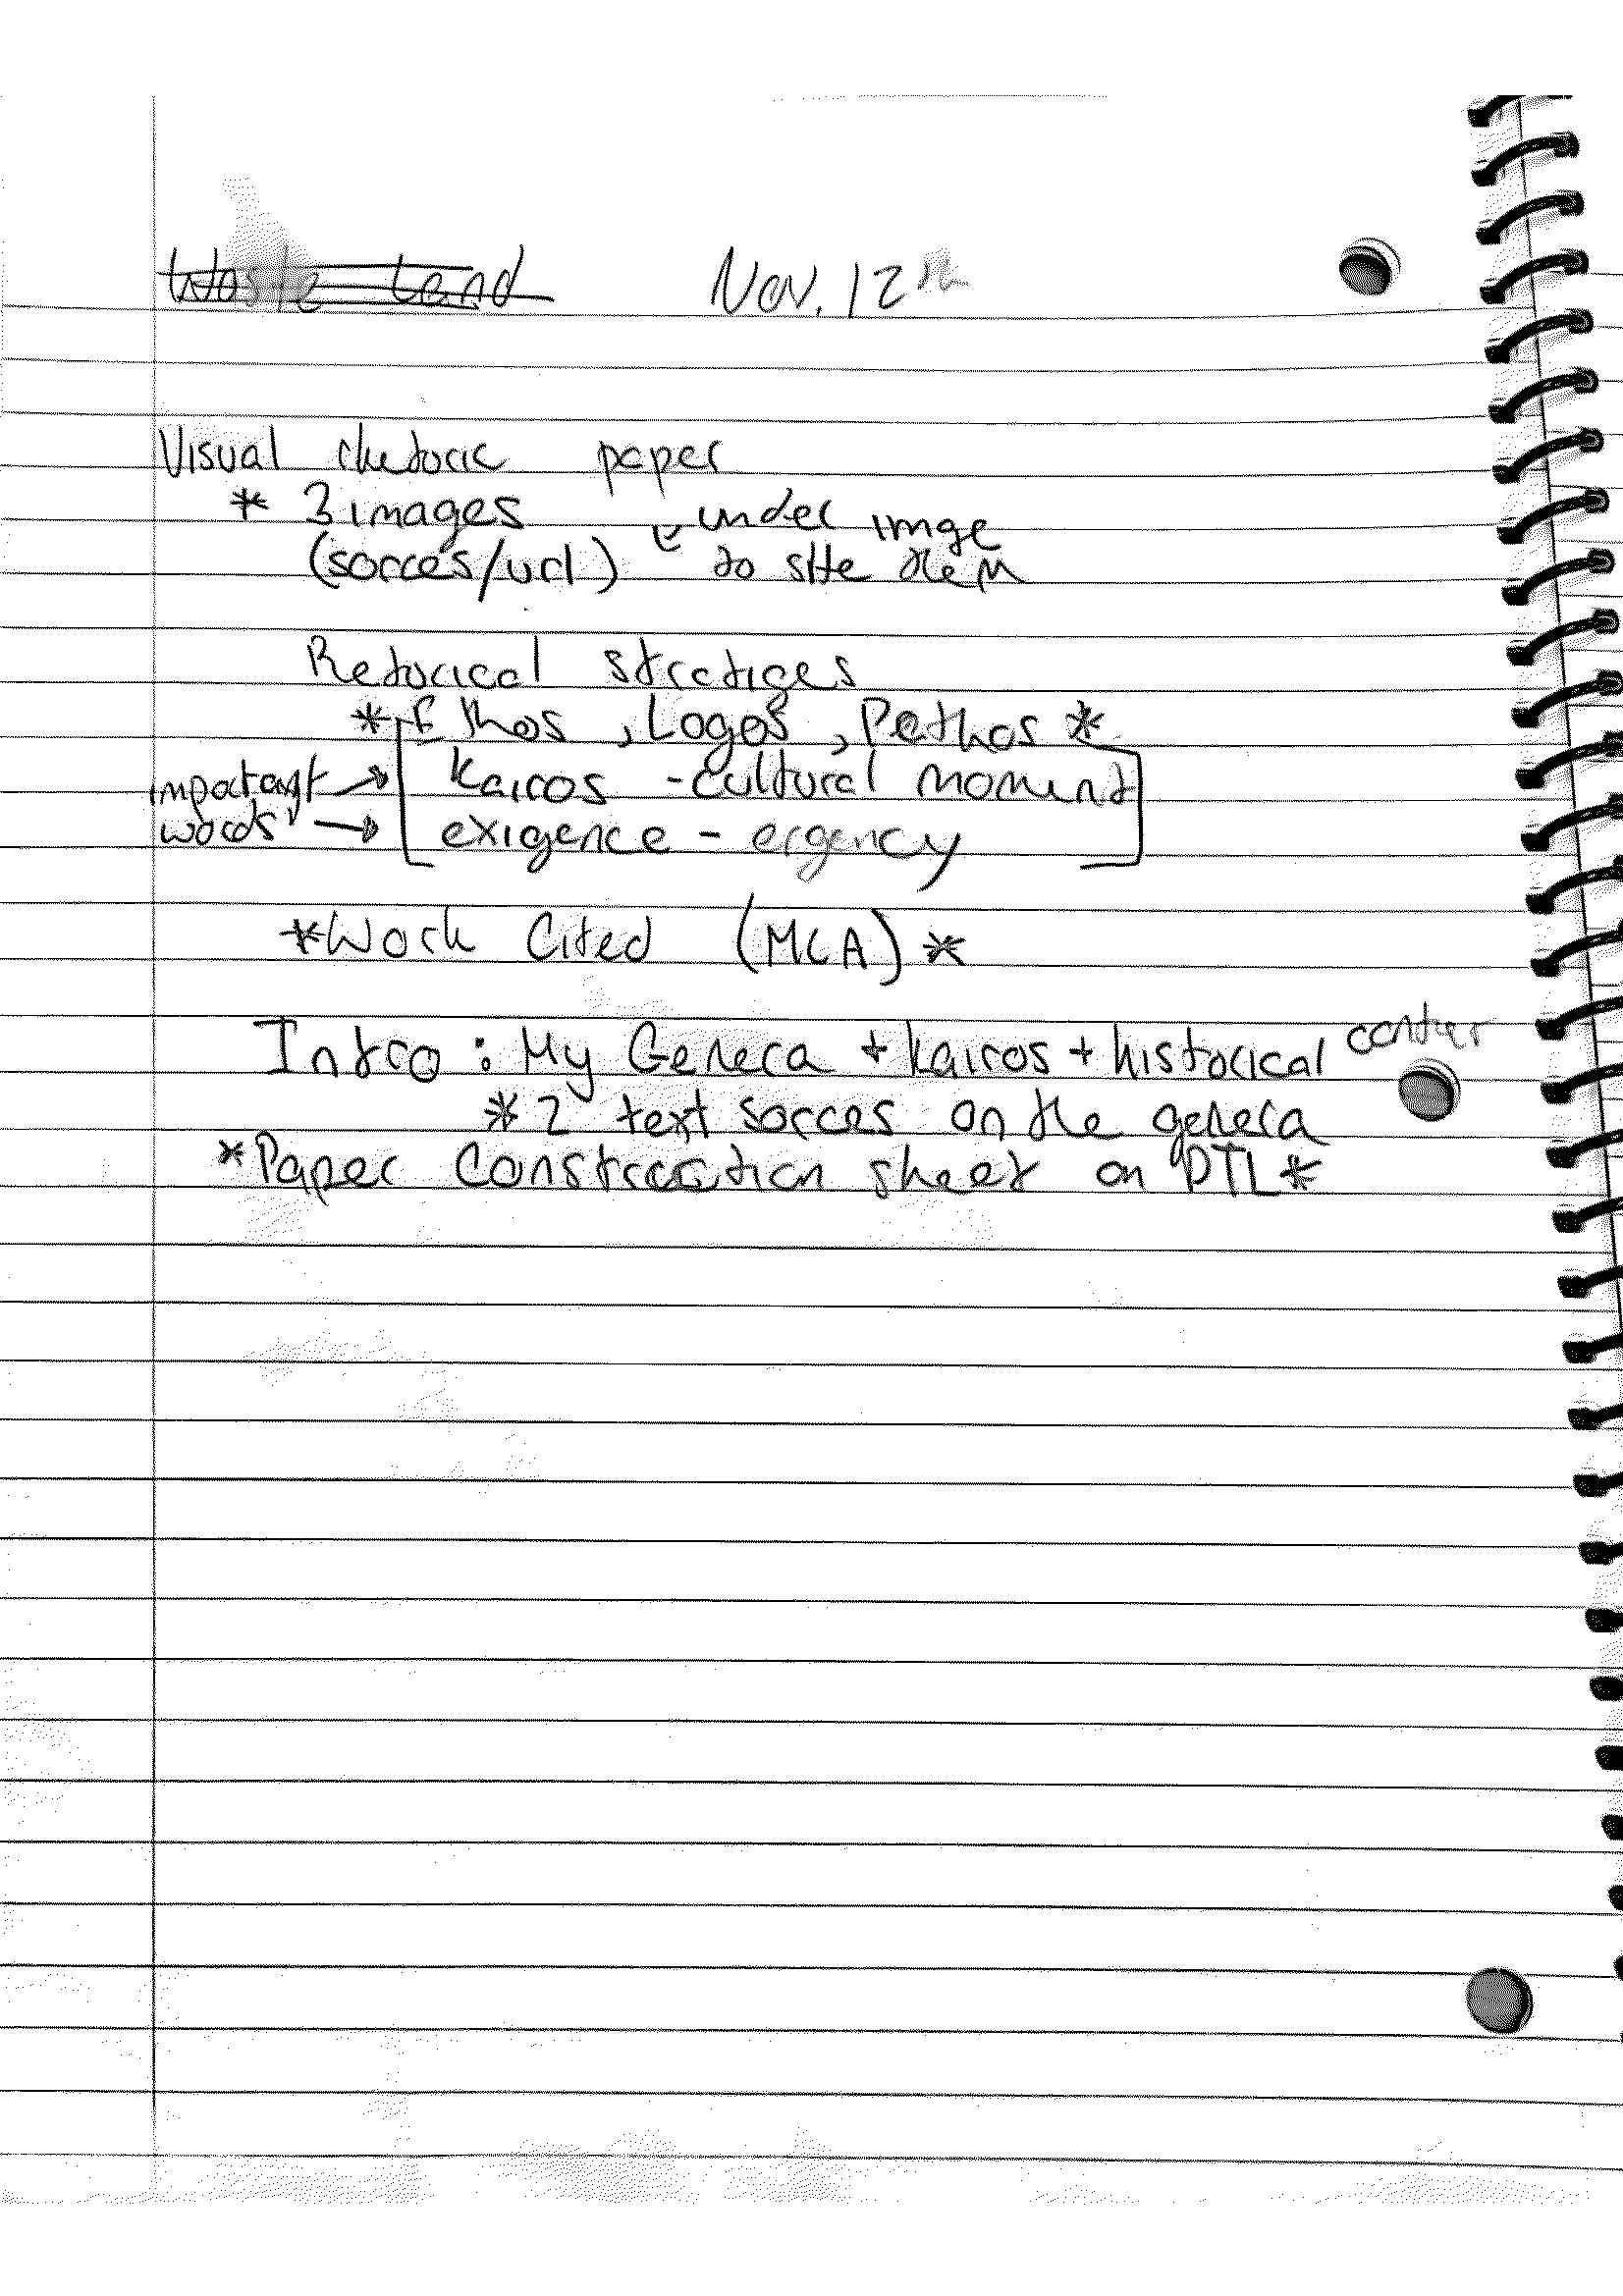 Waste Land Nov. 12th
Visual rhetoric paper
* 3 images under image
(sorces/url) to site them
Retorical stratiges
* Ethos , Logos , Pathos *
important → Kairos - cultural moment
words → exigence - ergency
*Work Cited (MLA) *
Intro : My Genera + kairos + historical
* 2 text sorces on the genera
*Paper Construction sheet on DTL*